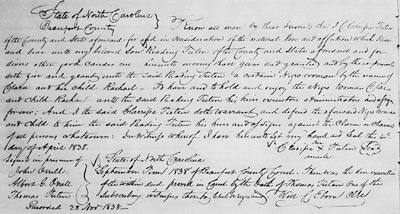 State of North Carolina
Beaufort County } Know all men by these presents that I Clarissa Tuten
of the County and State aforesaid for and in Consideration of the natural love and affection which I have
and bear unto my second Son Reading Tuten of the County and State aforesaid and for
divers other good causes me hereunto moving have given and granted and by these presents
doth give and grant unto the said Reading Tuten a certain Negro woman by the name of
Clara and his child Rachael - To have and to hold and enjoy the Negro Woman Clara
and Child Rachael unto the said Reading Tuten his heirs executors administrators and assigns
forever; And I the said Clarissa Tuten doth warrant and defend the aforesaid Negro woman
and Child to him the said Reading Tuten his heirs and assigns against the Claim or Claims
of all persons whatsoever. In witness whereof I have hereunto set my hand and Seal this
day of April 1838. Clarissa X Tuten Seal
Signed in presence of mark
John Orell } State of North Carolina
Albert G. Orell September Term 1838 of Beaufort County Court. Then was the due execution
Thomas Tuten of the within deed proved in Court by the oath of Thomas Tuten one of the
Subscribing witnesses thereto,
Recorded 28 Nov 1838